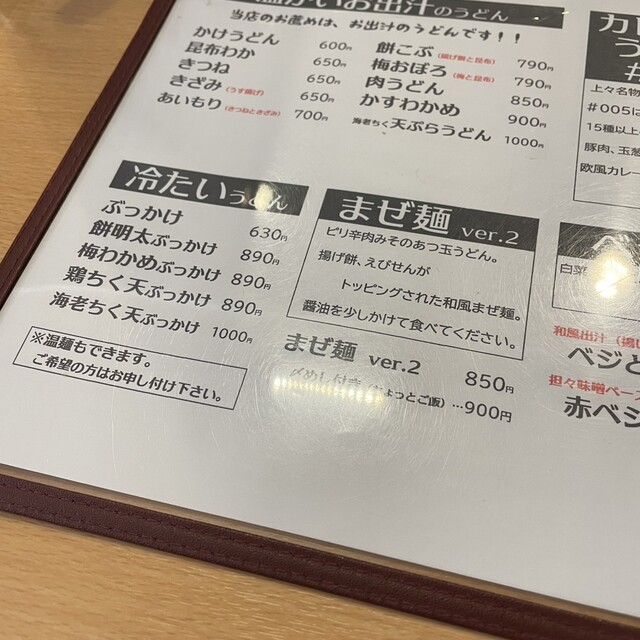 温かいお出汁のうどん
当店のお薦めは、お出汁のうどんです！！
かけうどん 600円
昆布わか 650円
きつね 650円
きざみ (うす揚げ) 650円
あいもり (きつねときざみ) 700円
餅こぶ (揚げ餅と昆布) 790円
梅おぼろ (梅と昆布) 790円
肉うどん 850円
かすわかめ 900円
海老ちく天ぷらうどん 1000円
冷たいうどん
ぶっかけ 630円
餅明太ぶっかけ 890円
梅わかめぶっかけ 890円
鶏ちく天ぶっかけ 890円
海老ちく天ぶっかけ 1000円
※温麺もできます。
ご希望の方はお申し付け下さい。
まぜ麺 ver.2
ピリ辛肉みそのあつ玉うどん。
揚げ餅、えびせんが
トッピングされた和風まぜ麺。
醤油を少しかけて食べてください。
まぜ麺 ver.2 850円
〆めし付き (ちょっとご飯) …900円
カレ
う
#
上々名物
#005は
15種以上
豚肉、玉葱
欧風カレー
ベ
白菜
和風出汁 (揚げ
ベジと
担々味噌ペース
赤ベジ